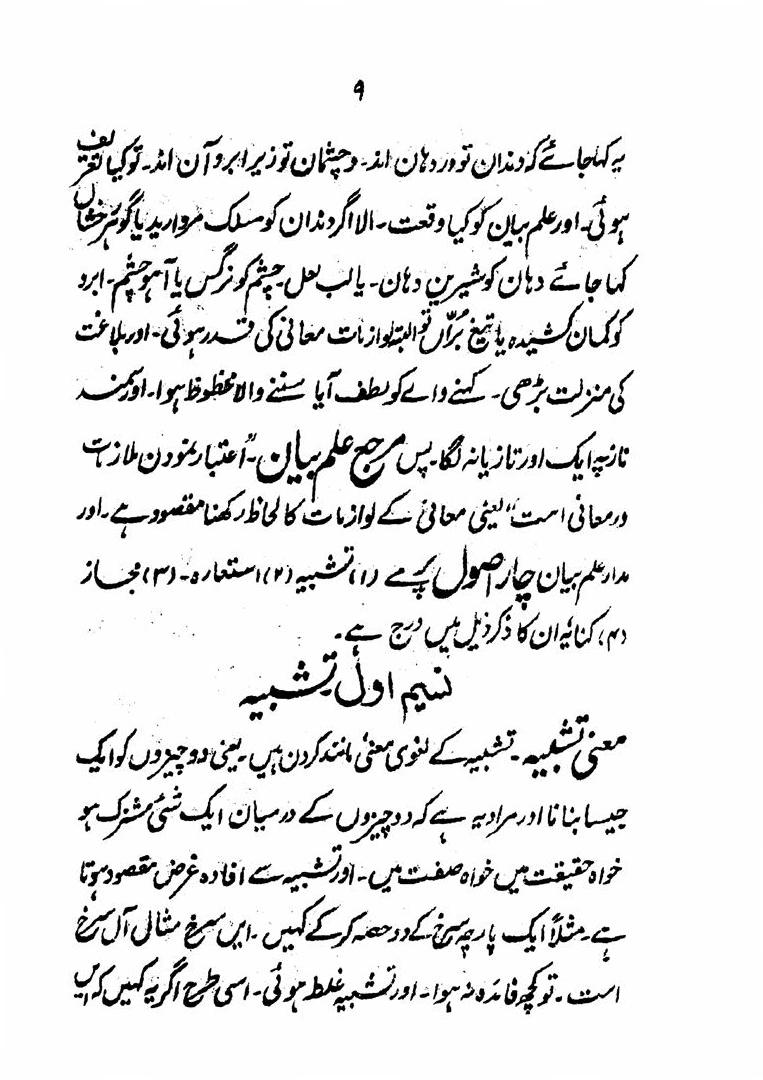 ۹
یہ کہا جائے کہ دندان تو در دہان اند۔ و چشمان تو زیر ابرو آن اند۔ تو کیا تعریف
ہوئی۔ اور علم بیان کو کیا وقعت۔ الا اگر دندان کو سلک مروارید یا گوہر رخشاں
کہا جائے دہان کو شیرین دہان۔ یا لب لعل۔ چشم کو نرگس یا آہو چشم۔ ابرو
کو کمان کشیدہ یا تیغ بُرّاں تو البتہ لوازمات معانی کی قدر ہوئی۔ اور بلاغت
کی منزلت بڑھی۔ کہنے والے کو لطف آیا سننے والا محظوظ ہوا۔ اور سمند
ناز پہ ایک اور تازیانہ لگا۔ پس مرجع علم بیان۔ "اعتبار نمودن ملازمات
در معانی است" یعنی معانی کے لوازمات کا لحاظ رکھنا مقصود ہے۔ اور
مدار علم بیان چار اصول پر ہے (۱) تشبیہ (۲) استعارہ۔ (۳) مجاز
(۴) کنایہ ان کا ذکر ذیل میں درج ہے۔
نسیم اول۔ تشبیہ
معنی تشبیہ۔ تشبیہ کے لغوی معنی مانند کردن ہیں۔ یعنی دو چیزوں کو ایک
جیسا بنانا اور مراد یہ ہے کہ دو چیزوں کے درمیان ایک شئی مشترک ہو
خواہ حقیقت میں خواہ صفت میں۔ اور تشبیہ سے افادہ غرض مقصود ہوتا
ہے۔ مثلاً ایک پارچہ سرخ کے دو حصہ کر کے کہیں۔ این سرخ مثالی آں سرخ
است۔ تو کچھ فائدہ نہ ہوا۔ اور تشبیہ غلط ہوئی۔ اسی طرح اگر یہ کہیں کہ ایں